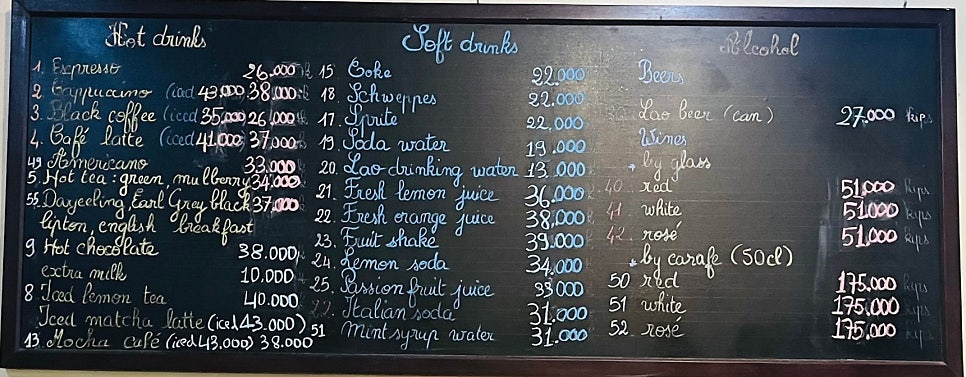 Hot drinks
1. Espresso 26.000
2. Cappuccino (iced 43.000) 38.000
3. Black coffee (iced 35.000) 26.000
4. Café latte (iced 41.000) 37.000
49 Americano 33.000
5. Hot tea : green, mulberry 34.000
55. Darjeeling, Earl Grey, black 37.000
lipton, english breakfast
9 Hot chocolate 38.000
extra milk 10.000
8. Iced lemon tea 40.000
Iced matcha latte (iced 43.000)
13. Mocha café (iced 43.000) 38.000
Soft drinks
15. Coke 22.000
18. Schweppes 22.000
17. Sprite 22,000
19. Soda water 19.000
20. Lao drinking water 13.000
21. Fresh lemon juice 36.000
22. Fresh orange juice 38.000
23. Fruit shake 39.000
24. Lemon soda 34.000
25. Passion fruit juice 33.000
Italian soda 31.000
51 Mint syrup water 31.000
Alcohol
Beers
Lao beer (can) 27.000 kips
Wines
* by glass
40. red 51.000 kips
41. white 51.000 kips
42. rosé 51.000 kips
* by carafe (50cl)
50 red 175.000 kips
51 white 175.000 kips
52. rosé 175.000 kips